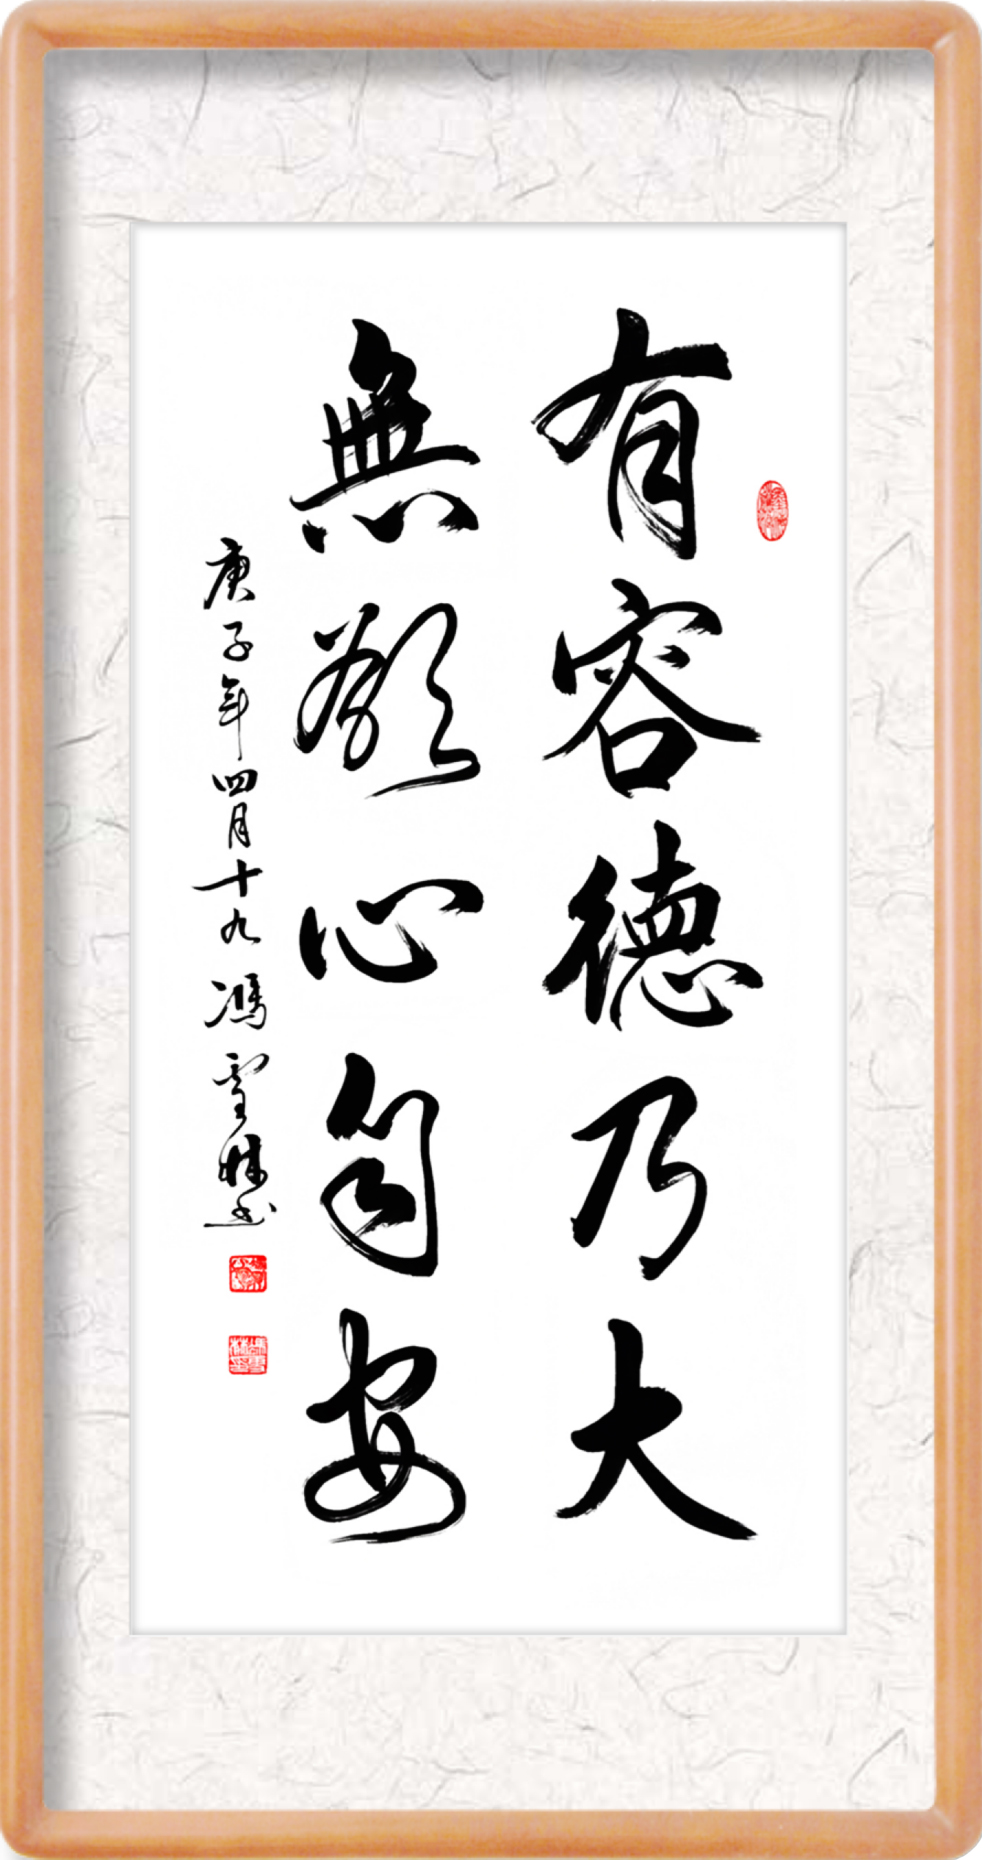 有容德乃大
無欲心自安
庚子年四月十九馮雪林书